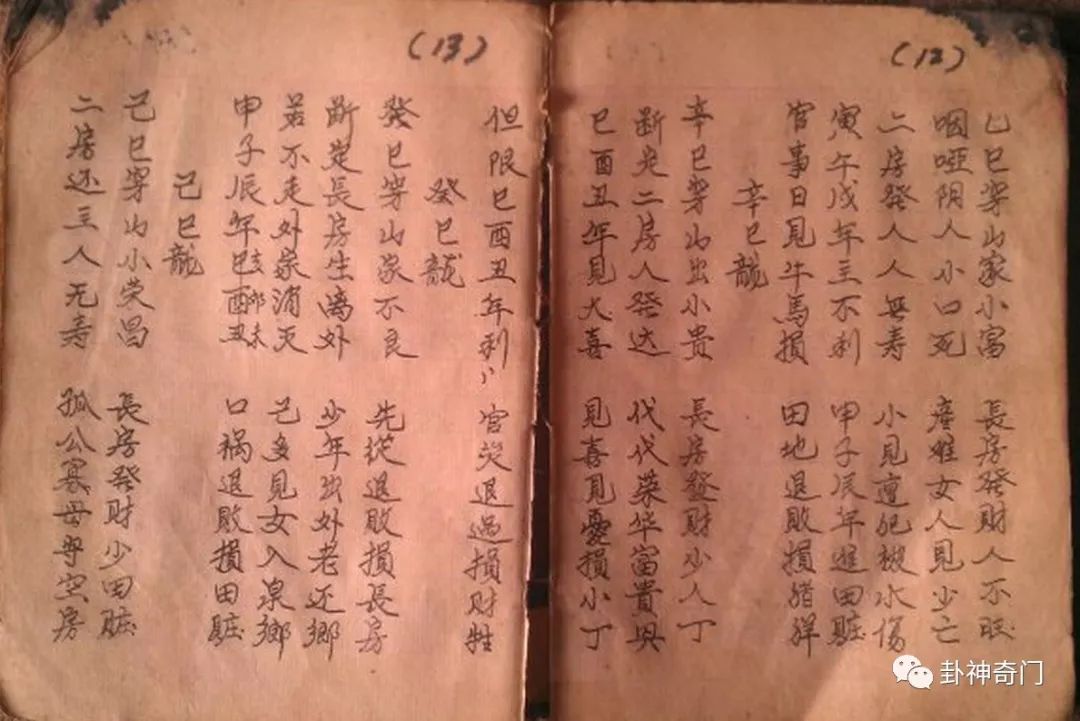 (12)
己巳穿山家小富 長房發財人不旺
咽啞阴人小口死 產难女人見少亡
二房發人人無寿 小見遭犯被水傷
寅午戌年主不利 申子辰年進田賍
官事日見牛馬損 田地退敗損猪羊
辛巳龍
辛巳穿山出小贵 長房發財少人丁
断定二房人發达 代代荣华富貴興
巳酉丑年見大喜 見喜見憂損小丁
(13)
但限巳酉丑年利 官災退過損財牲
癸巳龍
癸巳穿山家不良 先從退敗損長房
断定長房生离外 少年出外老还鄉
若不走外家消灭 己多見女入泉鄉
申子辰年巳酉丑亥卯未 口祸退敗損田賍
己巳龍
己巳穿山小荣昌 長房發财少田賍
二房还主人无寿 孤公寡母守空房
卦神奇门